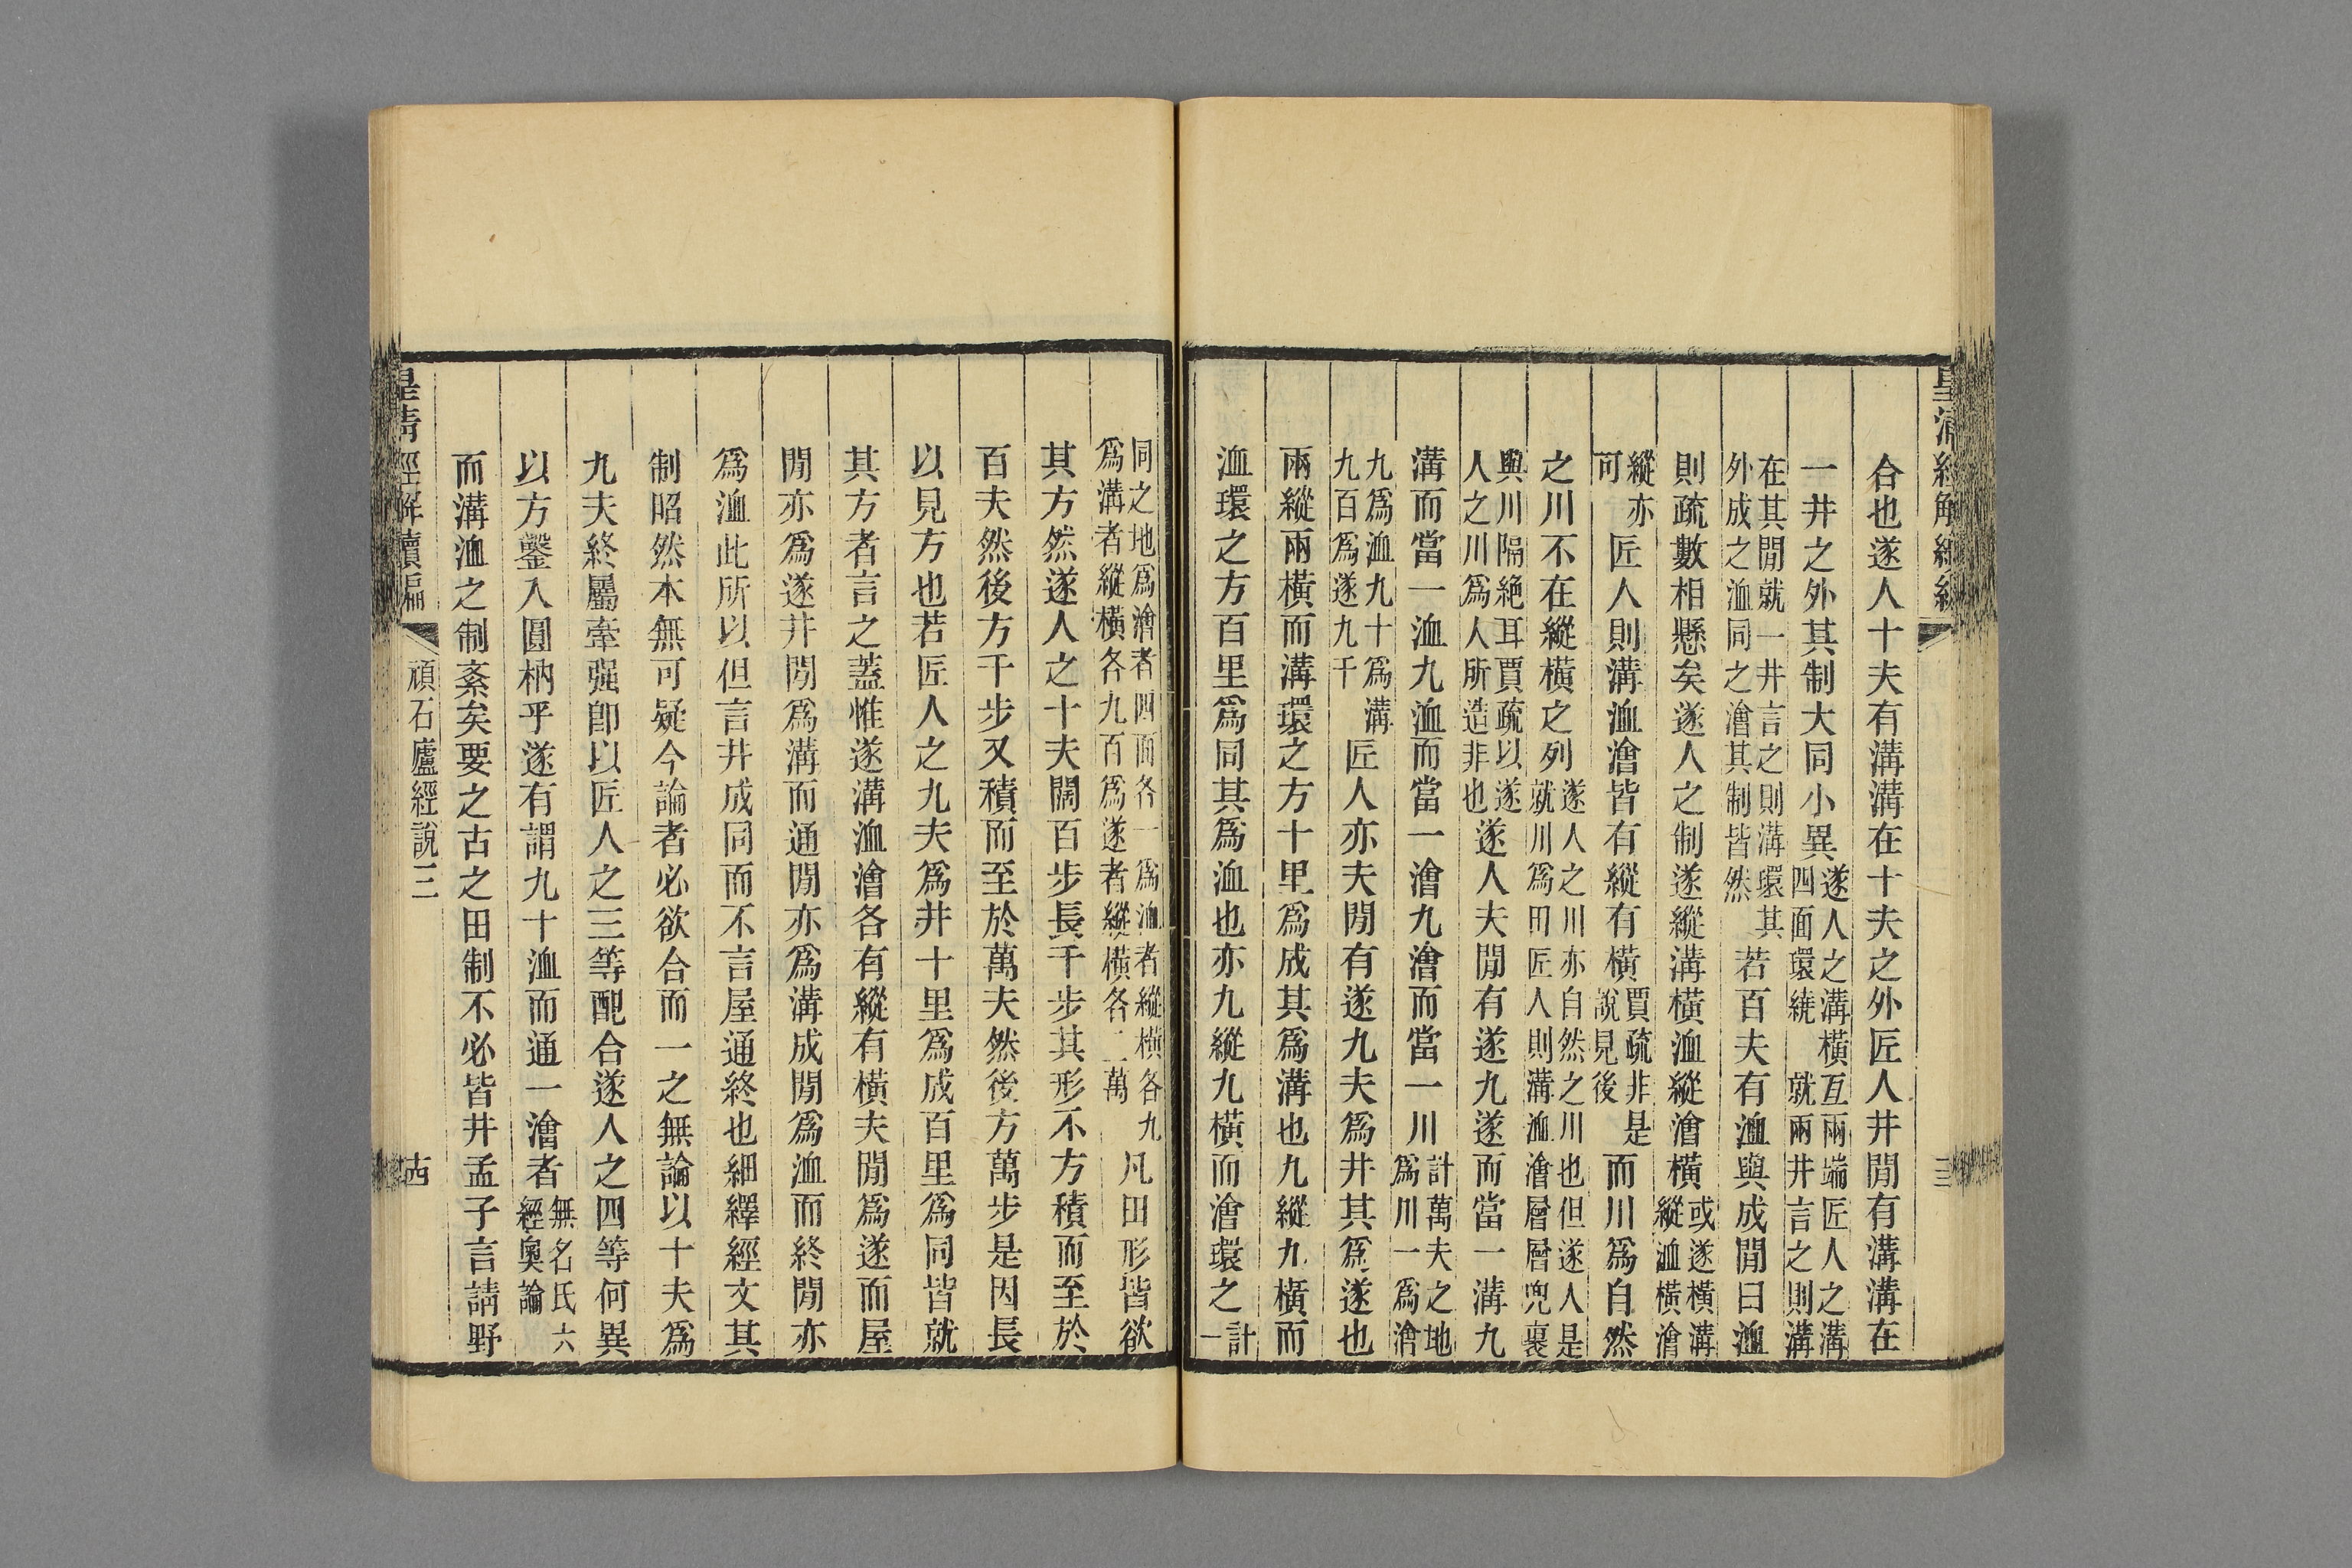 皇清經解續編
合也遂人十夫有溝溝在十夫之外匠人井閒有溝溝在
一井之外其制大同小異遂人之溝橫互兩端匠人之溝
四面環繞就兩井言之則溝
在其閒就一井言之則溝環其
外成之洫同之澮其制皆然若百夫有洫與成閒曰洫
則疏數相懸矣遂人之制遂縱溝橫洫縱澮橫或遂橫溝
縱洫橫澮
縱亦
可匠人則溝洫澮皆有縱有橫賈疏非是
說見後而川爲自然
之川不在縱橫之列遂人之川亦自然之川也但遂人是
就川爲田匠人則溝洫澮層層兜裹
與川隔絕耳賈疏以遂
人之川爲人所造非也遂人夫閒有遂九遂而當一溝九
溝而當一洫九洫而當一澮九澮而當一川計萬夫之地
爲川一爲澮
九爲洫九十爲溝
九百爲遂九千匠人亦夫閒有遂九夫爲井其爲遂也
兩縱兩橫而溝環之方十里爲成其爲溝也九縱九橫而
洫環之方百里爲同其爲洫也亦九縱九橫而澮環之計
一
同之地爲澮者四面各一爲洫者縱橫各九
爲溝者縱橫各九百爲遂者縱橫各二萬凡田形皆欲
其方然遂人之十夫闊百步長千步其形不方積而至於
百夫然後方千步又積而至於萬夫然後方萬步是因長
以見方也若匠人之九夫爲井十里爲成百里爲同皆就
其方者言之蓋惟遂溝洫澮各有縱有橫夫閒爲遂而屋
閒亦爲遂井閒爲溝而通閒亦爲溝成閒爲洫而終閒亦
爲洫此所以但言井成同而不言屋通終也細繹經文其
制昭然本無可疑今論者必欲合而一之無論以十夫爲
九夫終屬牽强卽以匠人之三等配合遂人之四等何異
以方鑿入圓枘乎遂有謂九十洫而通一澮者無名氏六
經奧論
而溝洫之制紊矣要之古之田制不必皆井孟子言請野
皇清經解續編
頑石廬經說三
十四